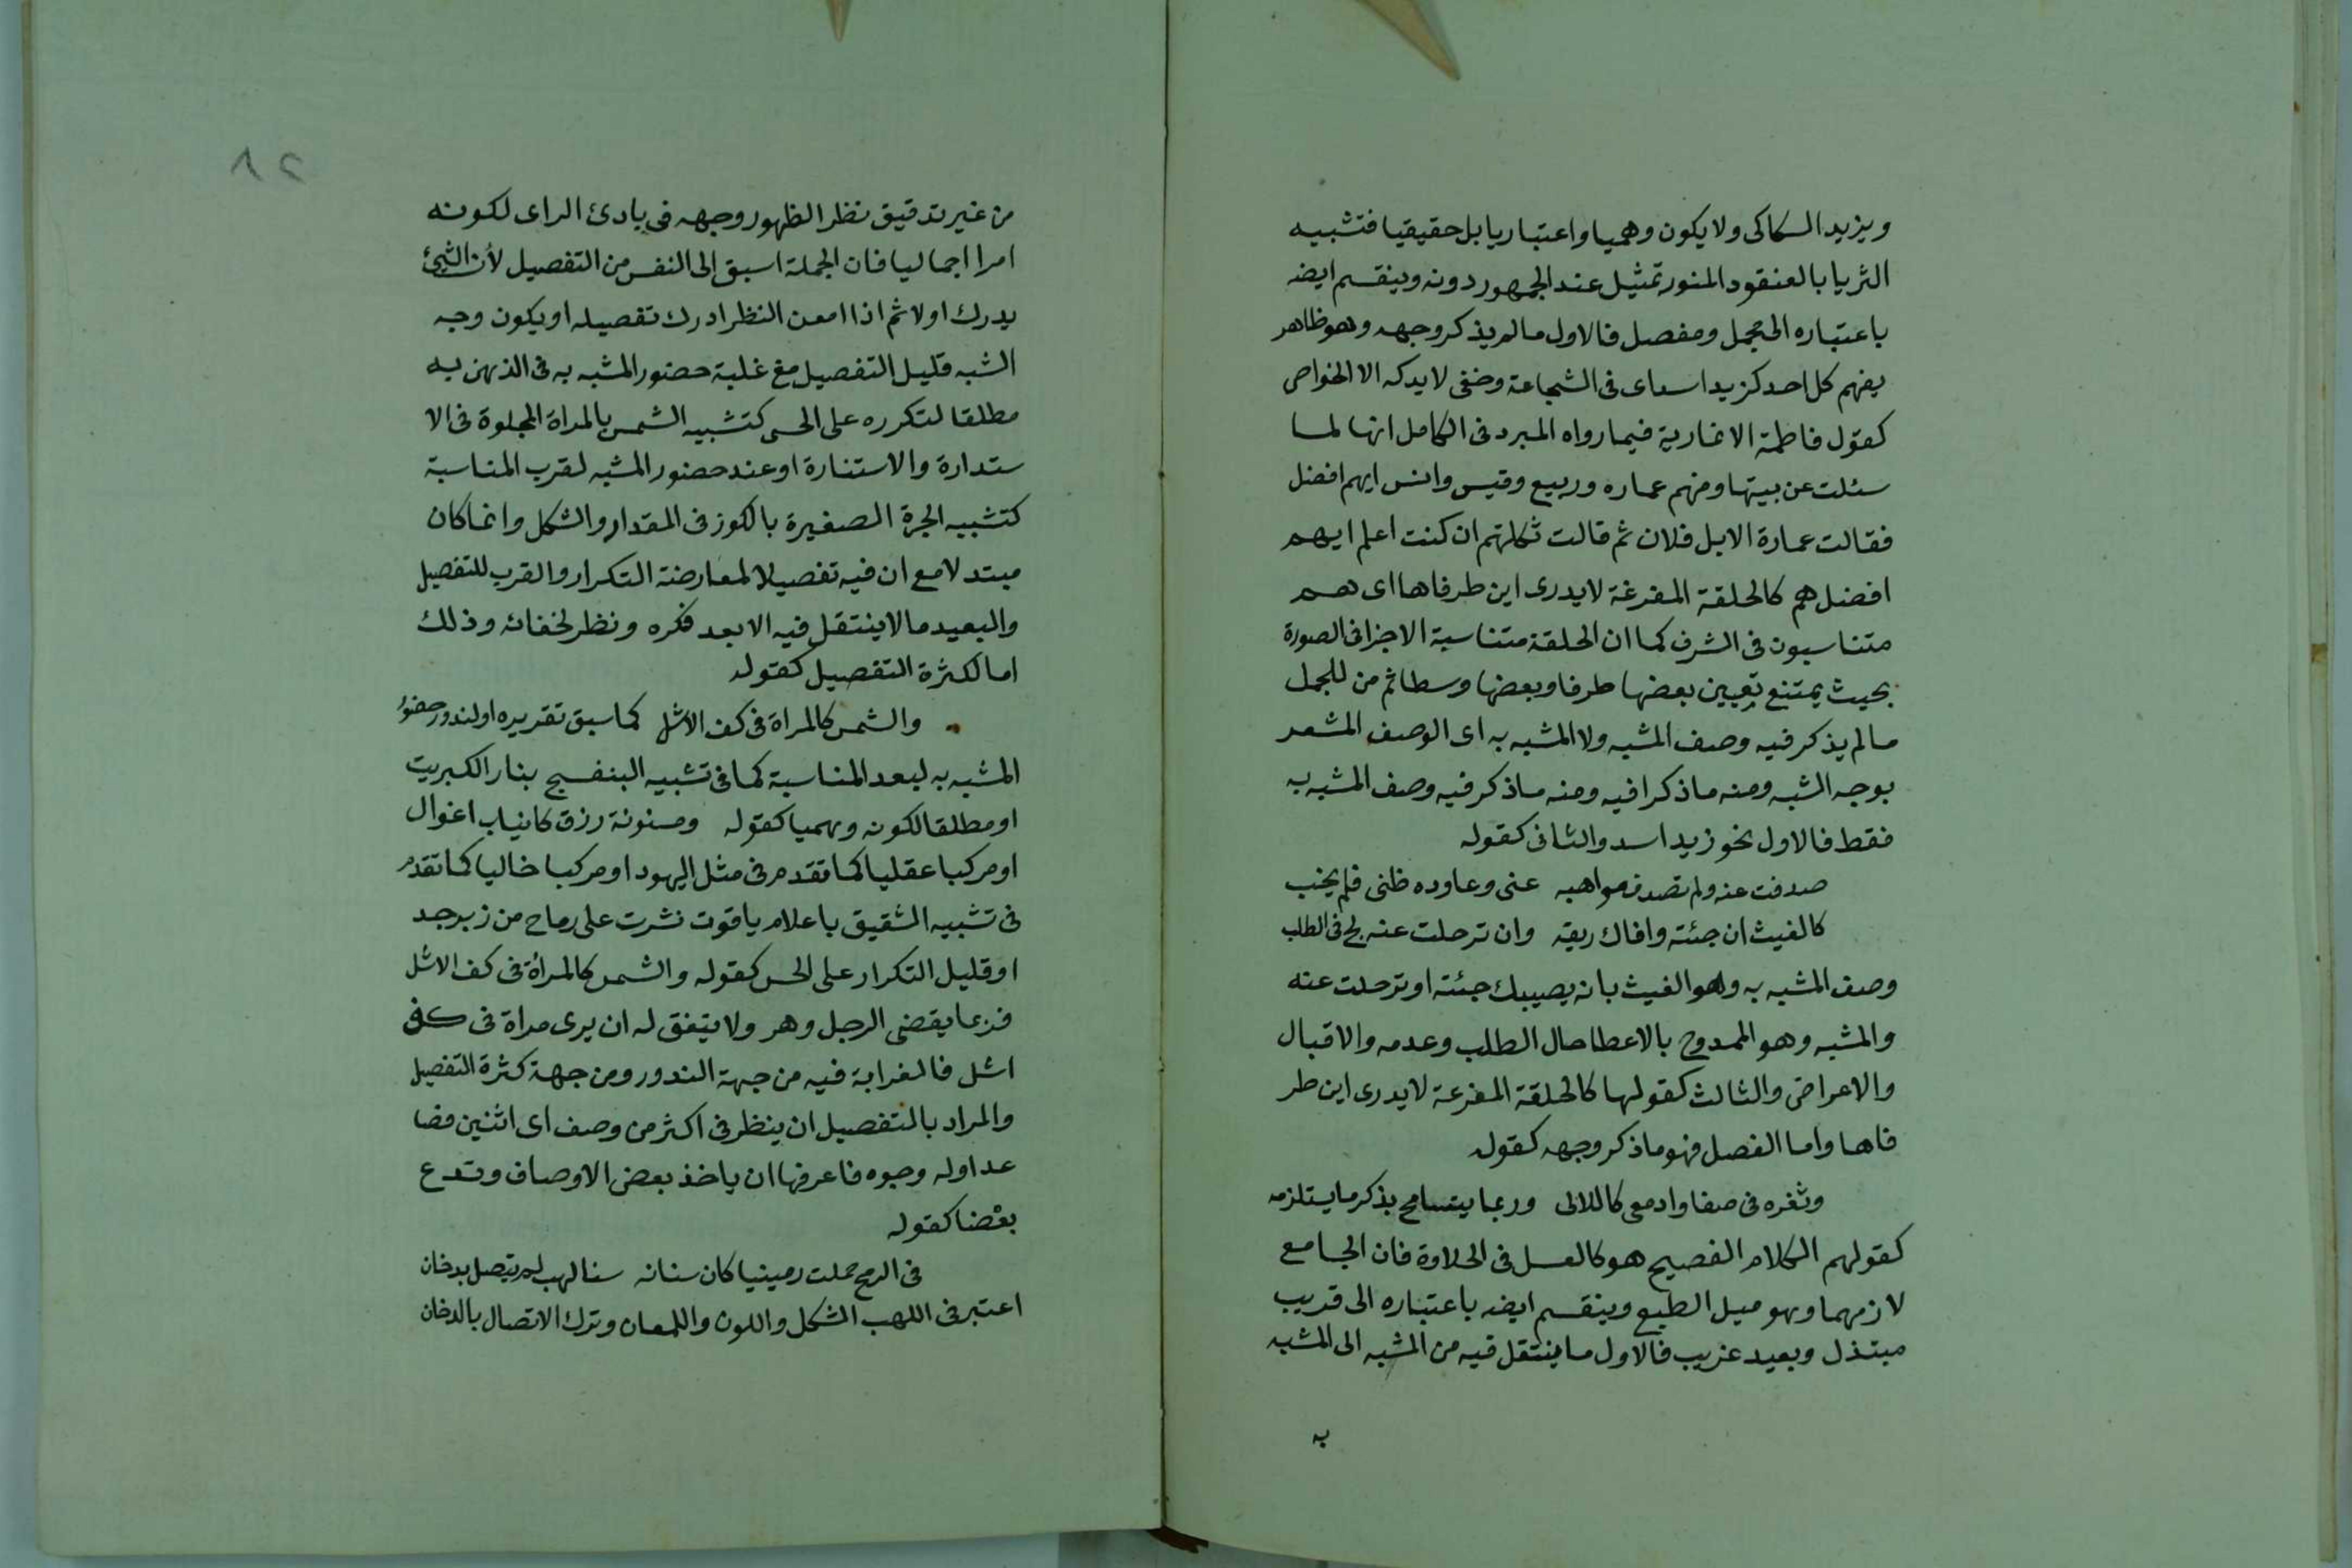 ويزيد السكاكى ولا يكون وهميا واعتباريا بل حقيقيا فتشبيه
الثريا بالعنقود المنور تمثيل عند الجمهور دونه وينقسم ايضه
باعتباره الى مجمل ومفصل فالاول مالم يذكر وجهه وهو ظاهر
يفهم كل احد كزيد اسد اى فى الشجاعة وخفى لا يدكه الا الخواص
كقول فاطمة الانمارية فيما رواه المبرد فى الكامل انها لما
سئلت عن بيتها ومنهم عماره وربيع وقيس وانس ايهم افضل
فقالت عمارة الابل فلان ثم قالت ثكلتهم ان كنت اعلم ايهم
افضل هم كالحلقة المفرغة لا يدرى اين طرفاها اى هم
متناسبون فى الشرف كما ان الحلقة متناسبة الاجزا فى الصورة
بحيث يمتنع تعيين بعضها طرفا وبعضها وسطا ثم من للجمل
مالم يذكر فيه وصف المشبه ولا المشبه به اى الوصف المشعر
بوجه الشبه ومنه ماذكرا فيه ومنه ماذكر فيه وصف المشبه به
فقط فالاول نحو زيد اسد والثانى كقوله
صدفت عنه ولم تصدف مواهبه عنى وعاوده ظنى فلم يخب
كالغيث ان جئته وافاك ريقه وان ترحلت عنه لج فى الطلب
وصف المشبه به وهو الغيث بانه يصيبك جئته او ترحلت عنه
والمشبه وهو الممدوح بالاعطا حال الطلب وعدمه والاقبال
والاعراض والثالث كقولها كالحلقة المفرغة لا يدرى اين طر
فاها واما الفصل فهو ماذكر وجهه كقوله
وثغره فى صفا وادمعى كاللالى وربما يتسامح بذكر ما يستلزمه
كقولهم الكلام الفصيح هو كالعسل فى الحلاوة فان الجامع
لازمهما وهو ميل الطبع وينقسم ايضه باعتباره الى قريب
مبتذل وبعيد غريب فالاول ما ينتقل فيه من المشبه الى المشبه
به
٨٢
من غير تدقيق نظر الظهور وجهه فى بادئ الراى لكونه
امرا اجماليا فان الجملة اسبق الى النفس من التفصيل لأن الشئ
يدرك اولا ثم اذا امعن النظر ادرك تفصيله او يكون وجه
الشبه قليل التفصيل مع غلبة حضور المشبه به فى الذهن به
مطلقا لتكرره على الحس كتشبيه الشمس بالمراة المجلوة فى الا
ستدارة والاستنارة او عند حضور المشبه لقرب المناسبة
كتشبيه الجرة الصغيرة بالكوز فى المقدار والشكل وانما كان
مبتدلا مع ان فيه تفصيلا لمعارضة التكرار والقرب للتفصيل
والبعيد مالا ينتقل فيه الا بعد فكره ونظر لخفائه وذلك
اما لكثرة التفصيل كقوله
والشمس كالمراة فى كف الأشل كما سبق تقريره او لندور حضور
المشبه به لبعد المناسبة كما فى تشبيه البنفسج بنار الكبريت
او مطلقا لكونه وهميا كقوله ومسنونة رزق كانياب اغوال
او مركبا عقليا كما تقدم فى مثل اليهود او مركبا خاليا كما تقدم
فى تشبيه الشقيق باعلام ياقوت نشرت على رماح من زبرجد
او قليل التكرار على الحس كقوله والشمس كالمرأة فى كف الاشل
فربما يقضى الرجل وهر ولا يتفق له ان يرى مراة فى كف
اشل فالغرابة فيه من جهة الندور ومن جهة كثرة التفصيل
والمراد بالتفصيل ان ينظر فى اكثر من وصف اى اثنين فصا
عدا وله وجوه فاعرفها ان ياخذ بعض الاوصاف وتدع
بعضا كقوله
فى الرمح حملت رمينيا كان سنانه سنا لهب لم يتصل بدخان
اعتبر فى اللهب الشكل واللون واللمعان وترك الاتصال بالدخان